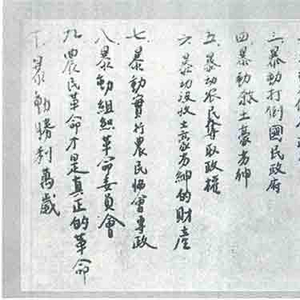 三 暴動打倒國民政府
四 暴動殺土豪劣紳
五 暴动农民奪取政權
六 暴动没收土豪劣紳的財產
七 暴動實行農民協會專政
八 暴動組織革命委員會
九 農民革命才是真正的革命
十 暴動勝利萬歲